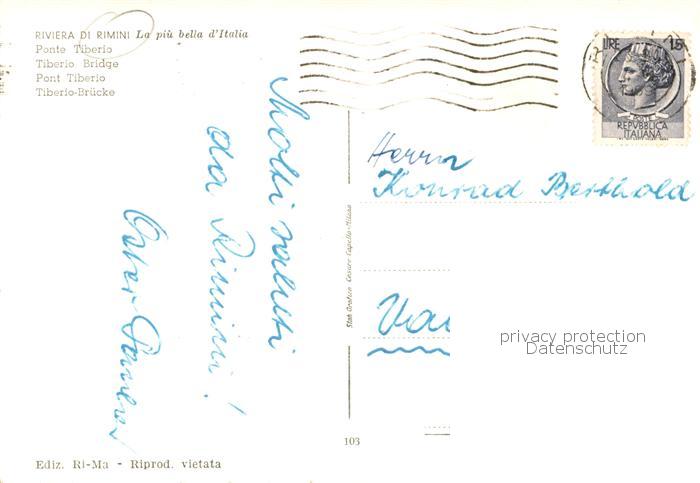 RIVIERA DI RIMINI La più bella d'Italia
Ponte Tiberio
Tiberio Bridge
Pont Tiberio
Tiberio-Brücke
LIRE 15
POSTE
REPVBBLICA
ITALIANA
Molti saluti
da Rimini!
Herrn
Konrad Berthold
Stab. Grafico Cesare Capello-Milano
privacy protection
Datenschutz
103
Ediz. Ri-Ma - Riprod. vietata